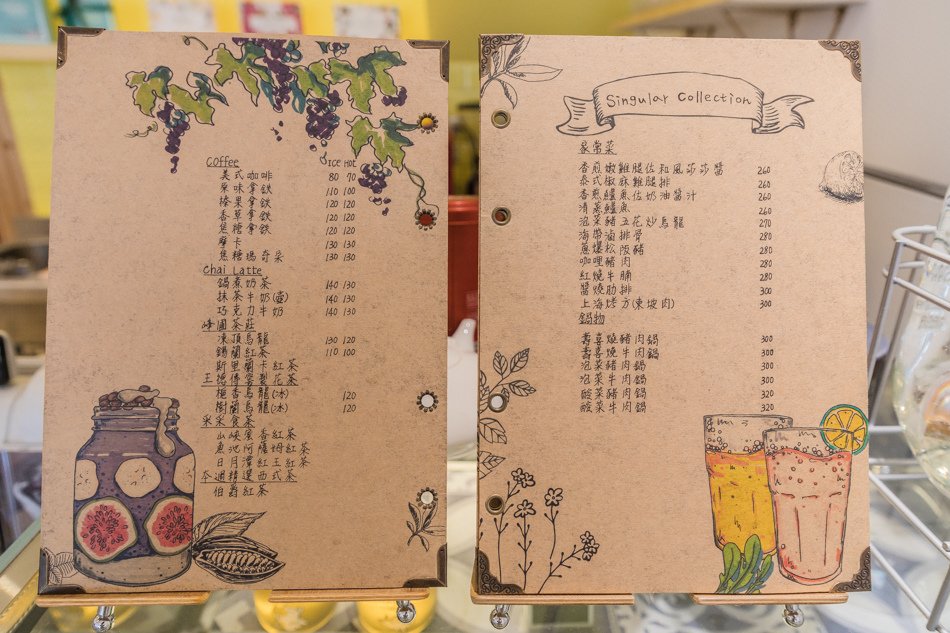 Coffee ICE HOT
美式咖啡 80 70
原味拿鐵 110 100
榛果拿鐵 120 120
香草拿鐵 120 120
焦糖拿鐵 120 120
摩卡 130 130
焦糖瑪奇朵 130 130
Chai Latte
鍋煮奶茶 140 130
抹茶牛奶(壺) 140 130
巧克力牛奶 140 130
峰圃茶莊
凍頂烏龍 130 120
錫蘭紅茶 110 100
斯里蘭卡紅茶
王德傳窨製花茶
梔香烏龍(冰) 120
樹蘭烏龍(冰) 120
采采食茶
山峽蜜香紅茶
魚池阿薩姆紅茶
日月潭紅玉紅茶
本週精選西式茶
伯爵紅茶
Singular Collection
家常菜
香煎嫩雞腿佐和風莎莎醬 260
泰式椒麻雞腿排 260
香煎鱸魚佐奶油醬汁 260
清蒸鱸魚 260
泡菜豬五花炒烏龍 270
海帶滷排骨 280
蔥爆松阪豬 280
咖哩豬肉 280
紅燒牛腩 280
醬燒肋排 300
上海烤方(東坡肉) 300
鍋物
壽喜燒豬肉鍋 300
壽喜燒牛肉鍋 300
泡菜豬肉鍋 300
泡菜牛肉鍋 300
酸菜豬肉鍋 320
酸菜牛肉鍋 320